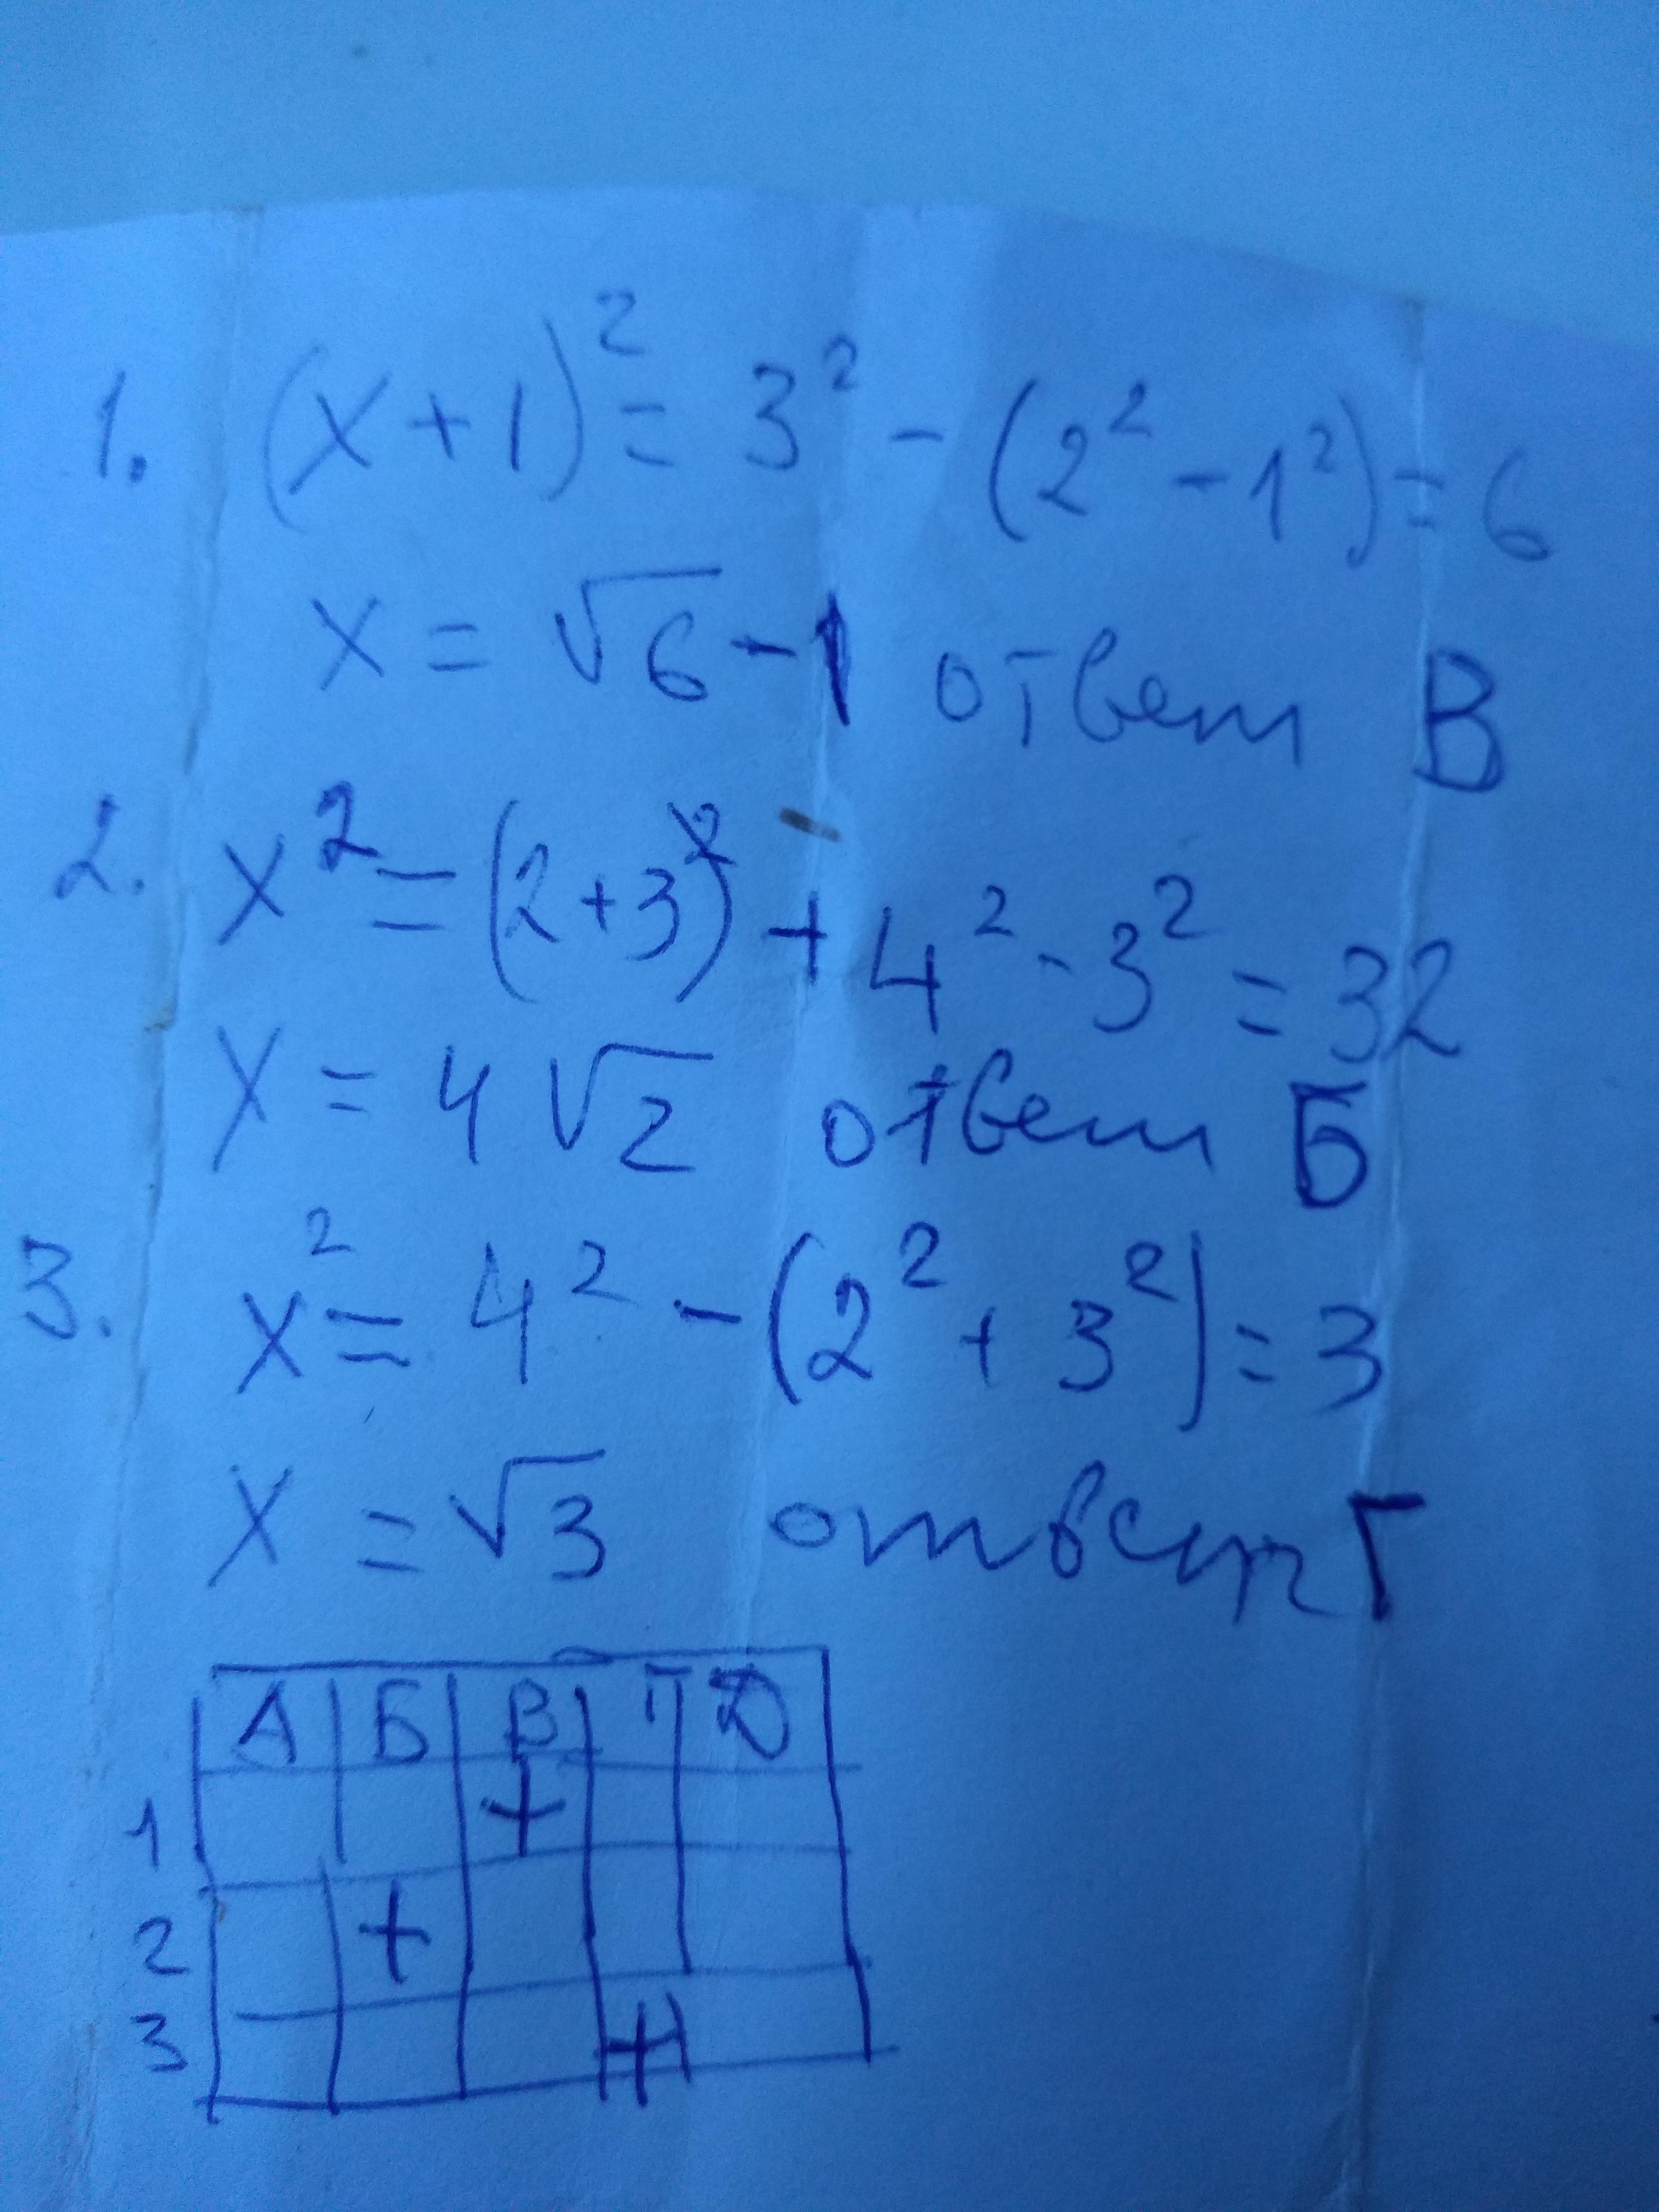 1. (x+1)² = 3² - (2² - 1²) = 6
x = √6 - 1 ответ В
2. x² = (2+3)² + 4² - 3² = 32
x = 4√2 ответ Б
3. x² = 4² - (2² + 3²) = 3
x = √3 ответ Г
А Б В Г Д
1 +
2 +
3 +